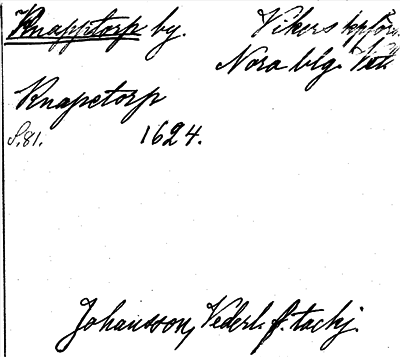 Knapptorp by. Vikers kplförs.
Nora blg.
Knapetorp
S.81. 1624.
Johansson, Vederl. f. tackj.